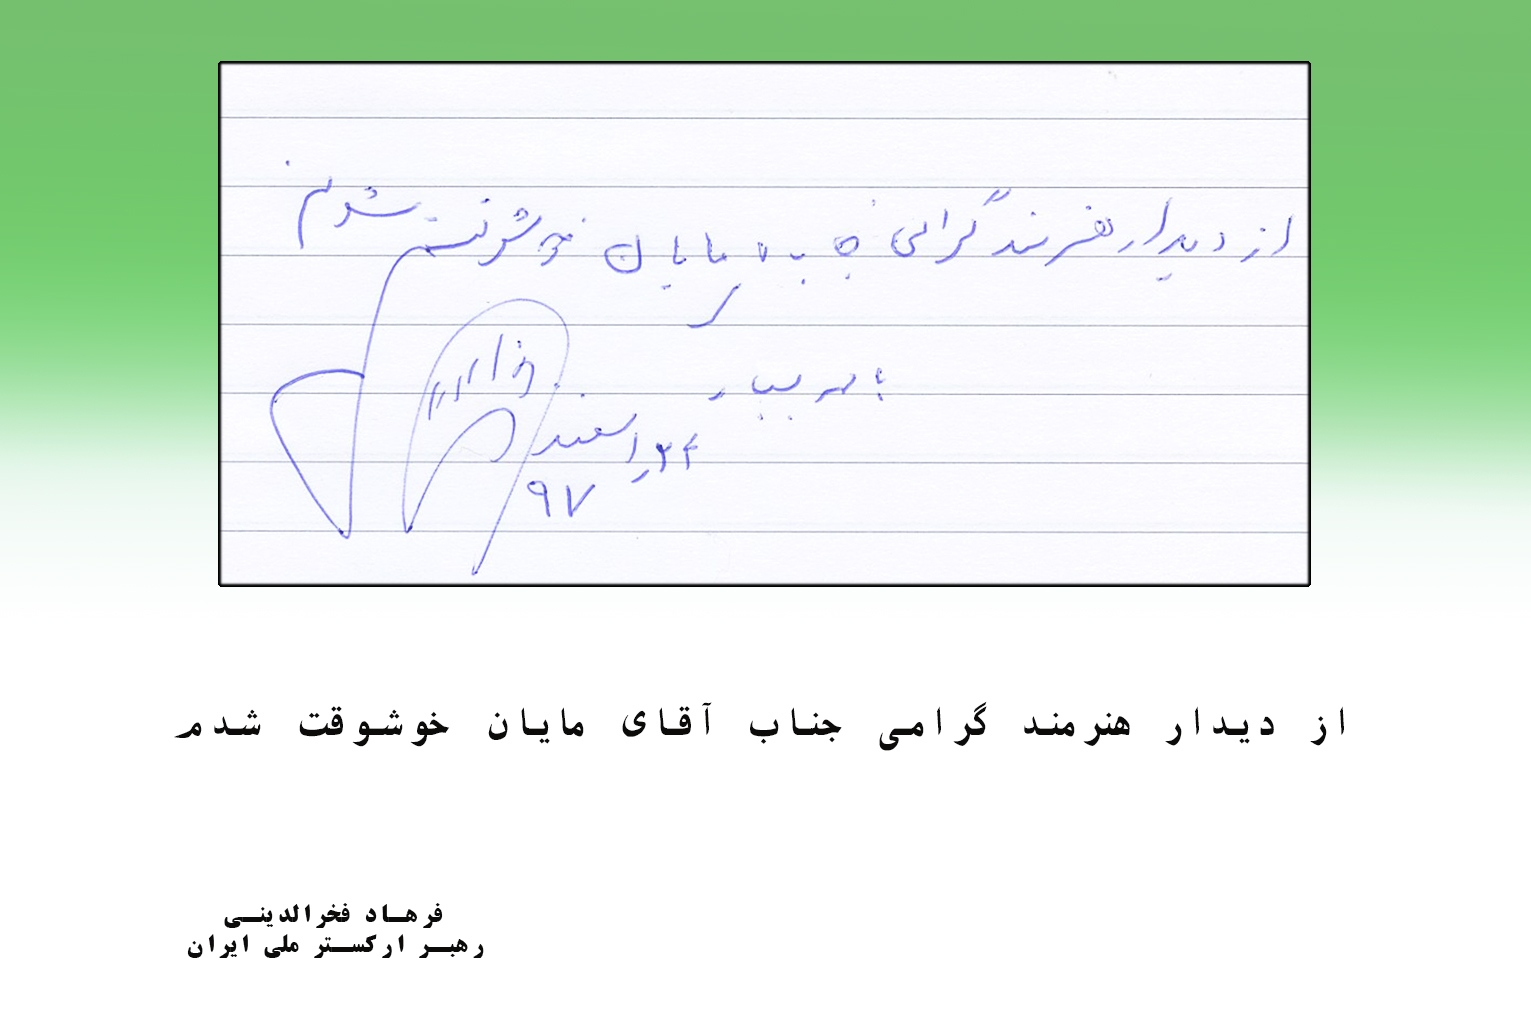 از دیدار هنرمند گرامی جناب آقای مایان خوشوقت شدم
با مهر بسیار
۲۴ اسفند
۹۷
از دیدار هنرمند گرامی جناب آقای مایان خوشوقت شدم
فرهاد فخرالدینی
رهبر ارکستر ملی ایران